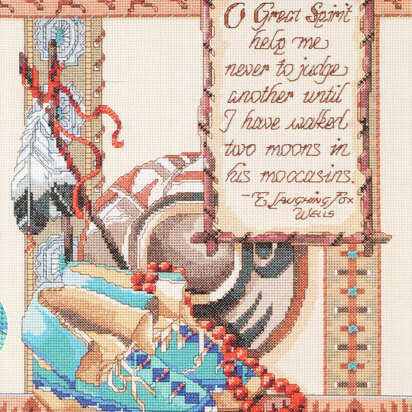 O Great Spirit
help me
never to judge
another until
I have walked
two moons in
his moccasins.
- E. Laughing Fox
Wells